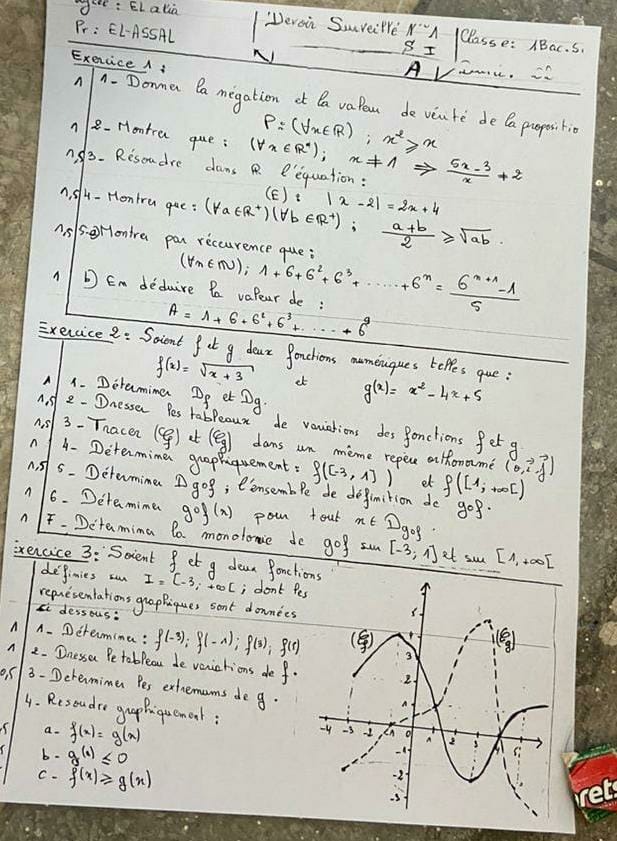 Lycée : EL atia
Pr : EL-ASSAL
Devoir Surveillé N°1
S I
A
Classe : 1Bac.S.
Exercice 1 :
1 1- Donner la négation et la valeur de vérité de la propositio
P : (∀x∈ℝ) ; x² ≥ x
1 2- Montrer que : (∀x∈ℝ*) ; x ≠ 1 ⇒ (5x-3)/x ≠ 2
1,5 3- Résoudre dans ℝ l'équation :
(E) : |x-2| = 2x+4
1,5 4- Montrer que : (∀a∈ℝ⁺)(∀b∈ℝ⁺) ; (a+b)/2 ≥ √ab .
1,5 5-a) Montrer par réccurence que :
(∀n∈ℕ) ; 1+6+6²+6³+.....+6ⁿ = (6ⁿ⁺¹-1)/5
1 b) En déduire la valeur de :
A = 1+6+6²+6³+.....+6⁹
Exercice 2 : Soient f et g deux fonctions numériques telles que :
f(x) = √x+3 et g(x) = x²-4x+5
1 1- Déterminer Df et Dg.
1,5 2- Dresser les tableaux de variations des fonctions f et g.
1,5 3- Tracer (Cf) et (Cg) dans un même repère orthonormé (o,i⃗,j⃗)
1 4- Déterminer graphiquement : f([-3,1]) et f([1,+∞[)
1,5 5- Déterminer Dgof ; l'ensemble de définition de gof.
1 6- Déterminer gof(x) pour tout x∈Dgof.
1 7- Déterminer la monotonie de gof sur [-3;1] et sur [1,+∞[
Exercice 3 : Soient f et g deux fonctions
définies sur I = [-3;+∞[ ; dont les
représentations graphiques sont données
ci dessous :
1 1- Déterminer : f(-3); f(-1); f(3); f(5)
1 2- Dresser le tableau de variations de f.
0,5 3- Déterminer les extremums de g.
4- Resoudre graphiquement :
a- f(x) = g(x)
b- g(x) ≤ 0
c- f(x) ≥ g(x)
(Cf) (Cg)
5
3
2
1
-4 -3 -2 -1 0 1 2 3 4 5
-1
-2
-3
rets